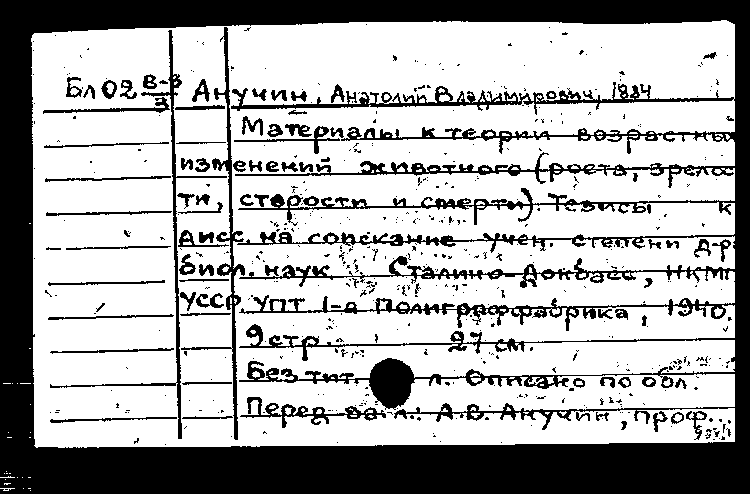 Бл 02 В-3/3 Анучин, Анатолий Владимирович, 1884
Материалы к теории возрастных
изменений животного (роста, зрелос
ти, старости и смерти). Тезисы к
дисс. на соискание учен. степени д-ра
биол. наук Сталино-Донбасс, НКМП
УССР. УПТ 1-а Полиграффабрика, 1940.
9 стр. 27 см.
Без тит. л. Описано по обл.
Перед загл.: А.В. Анучин, проф...